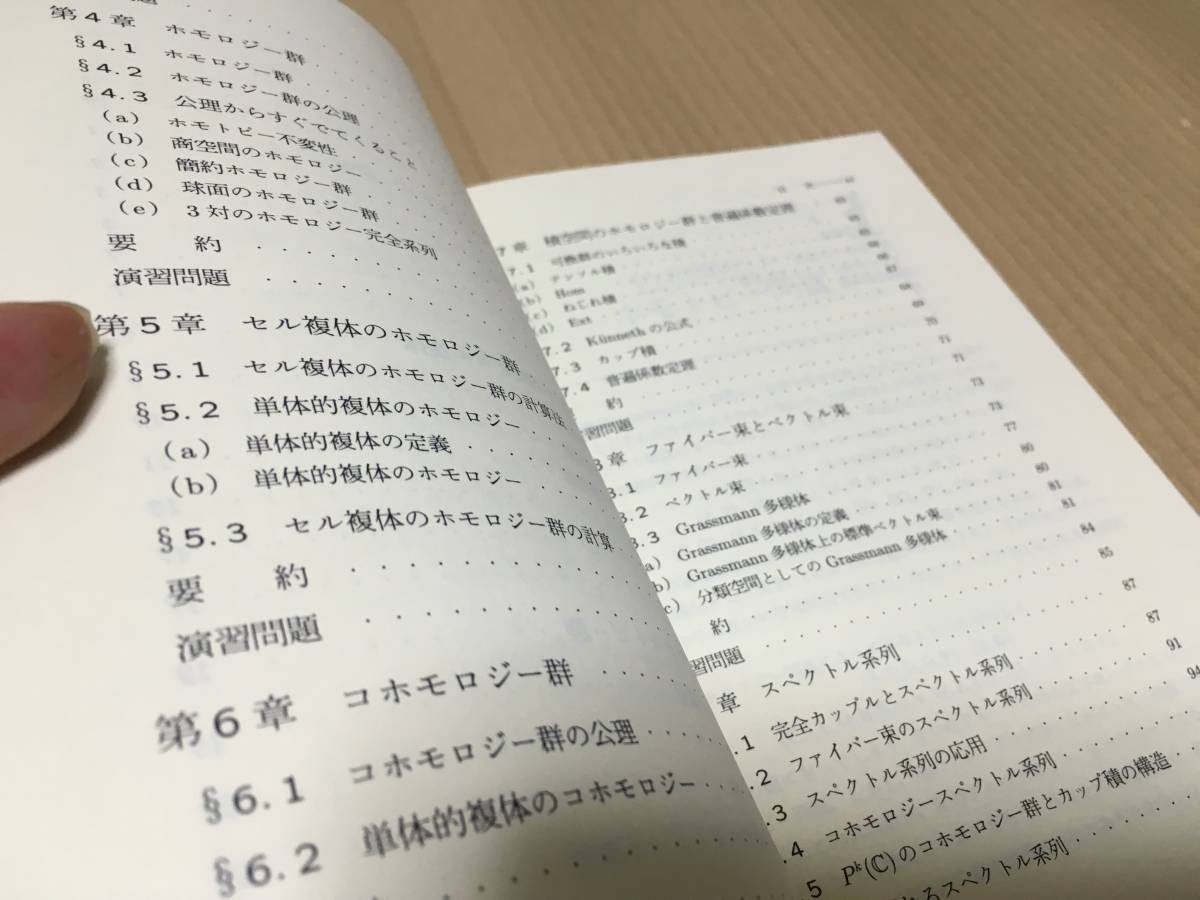 題
第4章 ホモロジー群
§4.1 ホモロジー群
§4.2 ホモロジー群の公理
§4.3 公理からすぐでてくること
(a) ホモトピー不変性
(b) 商空間のホモロジー
(c) 簡約ホモロジー群
(d) 球面のホモロジー群
(e) 3対のホモロジー完全系列
要 約
演習問題
第5章 セル複体のホモロジー群
§5.1 セル複体のホモロジー群の計算法
§5.2 単体的複体のホモロジー
(a) 単体的複体の定義
(b) 単体的複体のホモロジー
§5.3 セル複体のホモロジー群の計算
要 約
演習問題
第6章 コホモロジー群
§6.1 コホモロジー群の公理
§6.2 単体的複体のコホモロジー
目 次
7章 積空間のホモロジー群と普遍係数定理
7.1 可換群のいちいちな積
(a) テンソル積
(b) Hom
(c) ねじれ積
(d) Ext
7.2 Künnethの公式
7.3 カップ積
7.4 普遍係数定理
約
習問題
章 ファイバー束とベクトル束
.1 ファイバー束
3.2 ベクトル束
3.3 Grassmann多様体
a) Grassmann多様体の定義
b) Grassmann多様体上の標準ベクトル束
c) 分類空間としてのGrassmann多様体
約
習問題
章 スペクトル系列
.1 完全カップルとスペクトル系列
.2 ファイバー束のスペクトル系列
.3 スペクトル系列の応用
.4 コホモロジースペクトル系列
5 Pᵏ(ℂ)のコホモロジー群とカップ積の構造
スペクトル系列
65
65
66
66
67
68
69
70
71
71
73
73
77
80
80
81
81
84
85
87
87
91
94